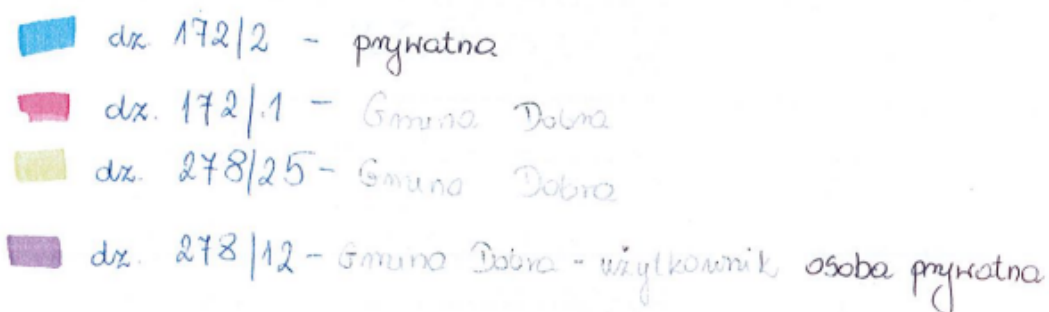 dz. 172/2 - prywatna
dz. 172/1 - Gmina Dobra
dz. 278/25 - Gmina Dobra
dz. 278/12 - Gmina Dobra - użytkownik osoba prywatna